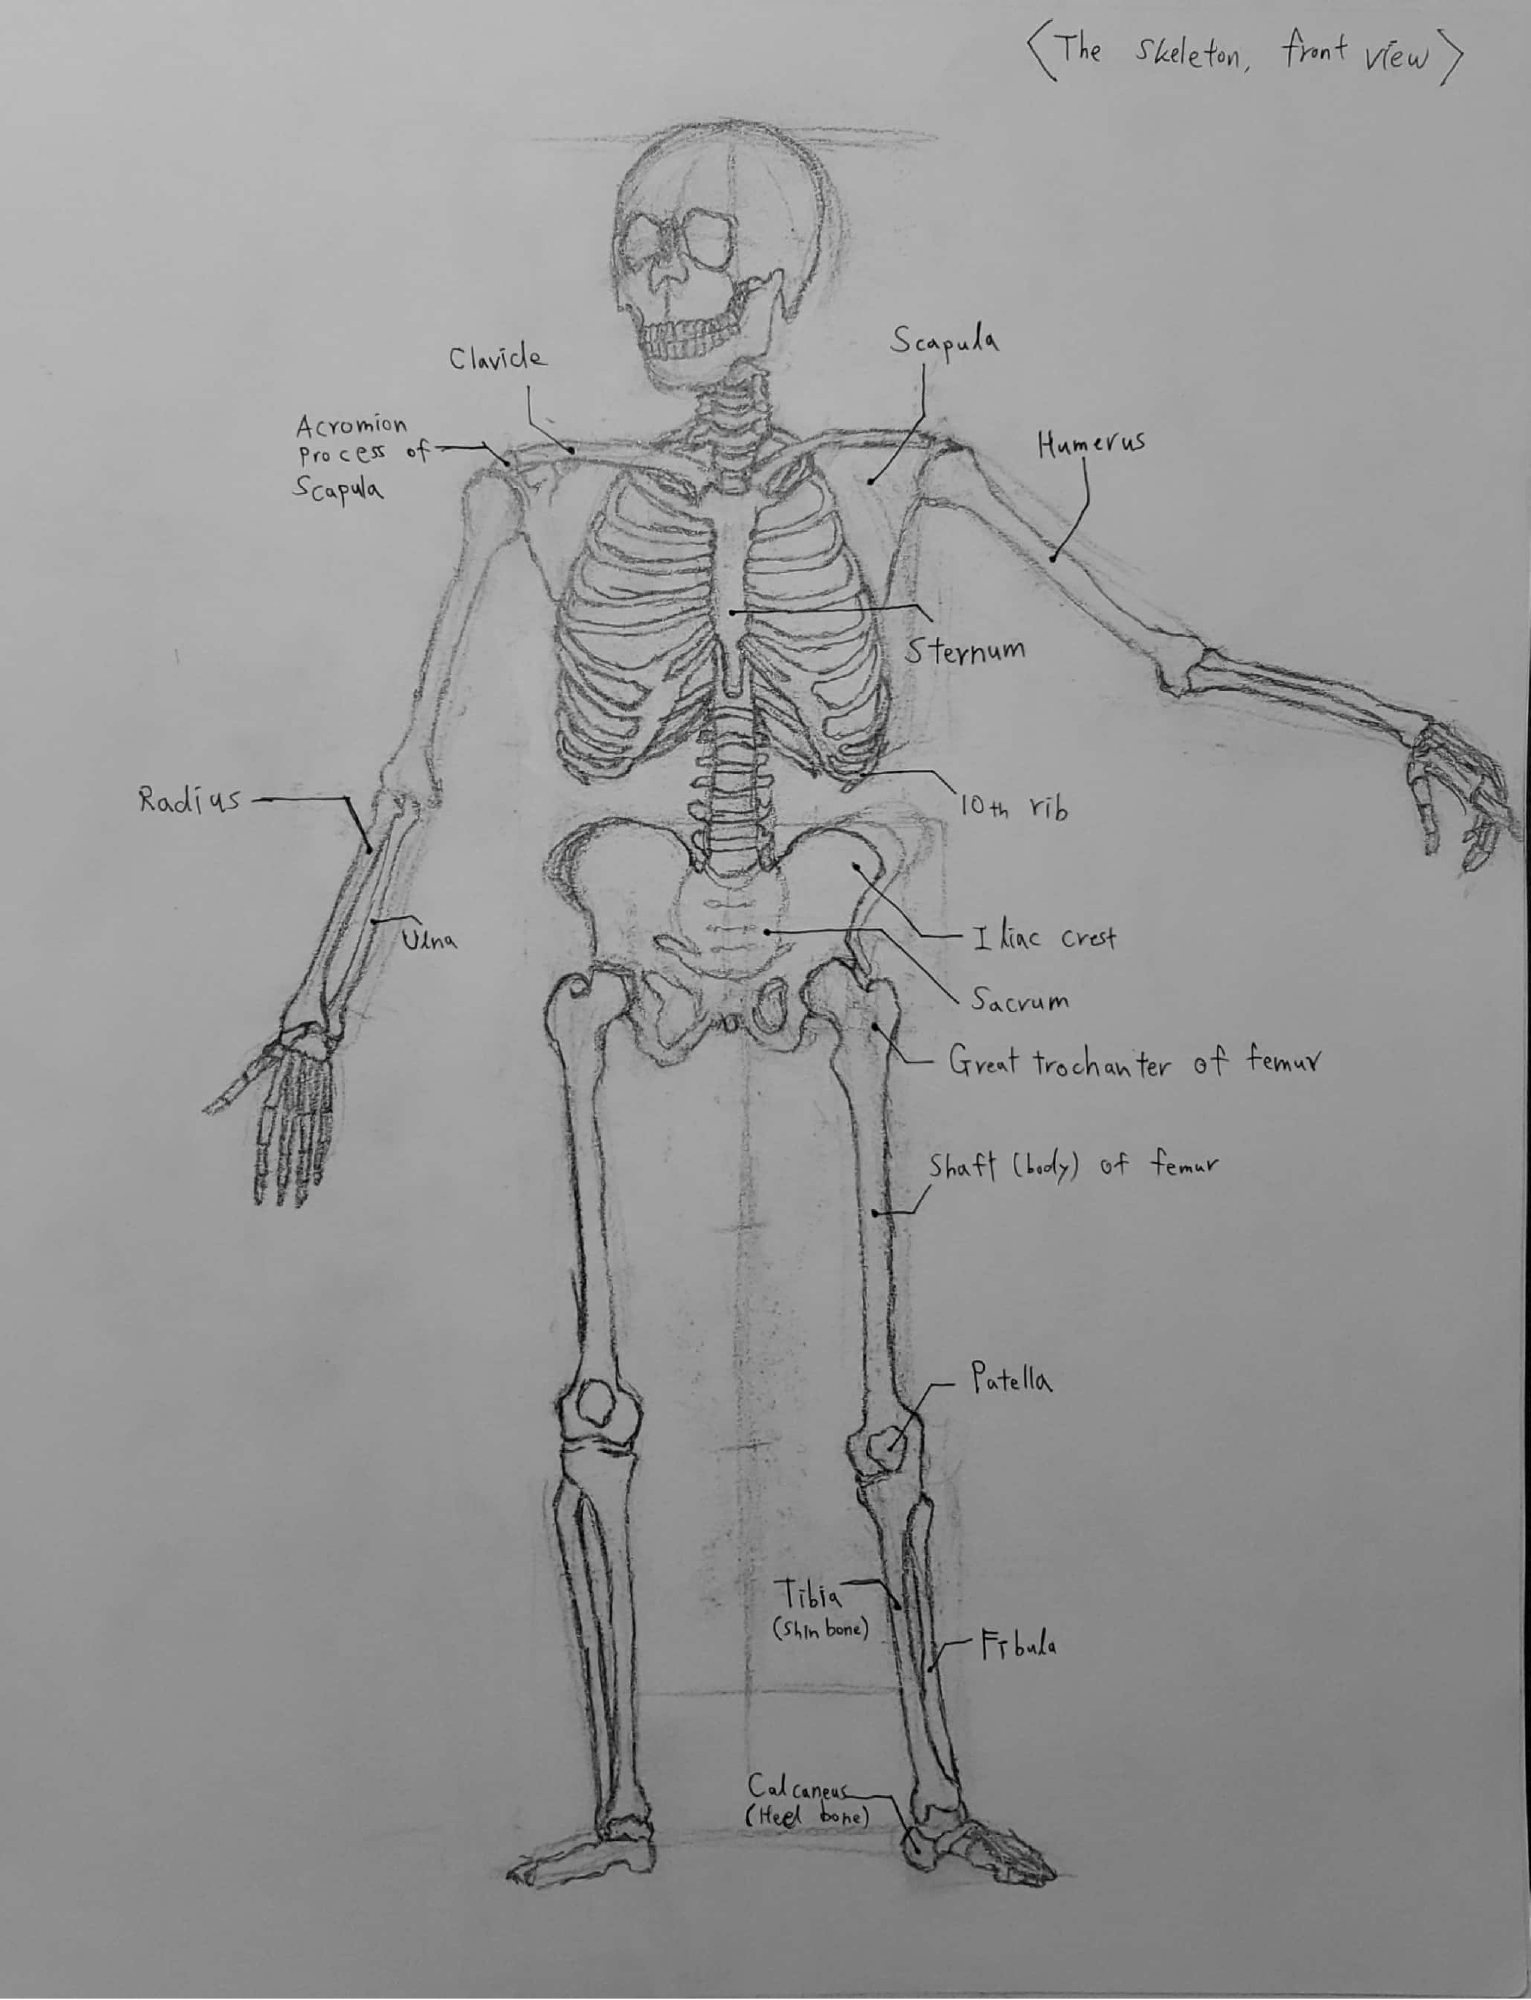 <The skeleton, front view>
Clavicle
Scapula
Acromion
process of
Scapula
Humerus
Sternum
Radius
10th rib
Ulna
Iliac crest
Sacrum
Great trochanter of femur
Shaft (body) of femur
Patella
Tibia
(Shin bone)
Fibula
Calcaneus
(Heel bone)